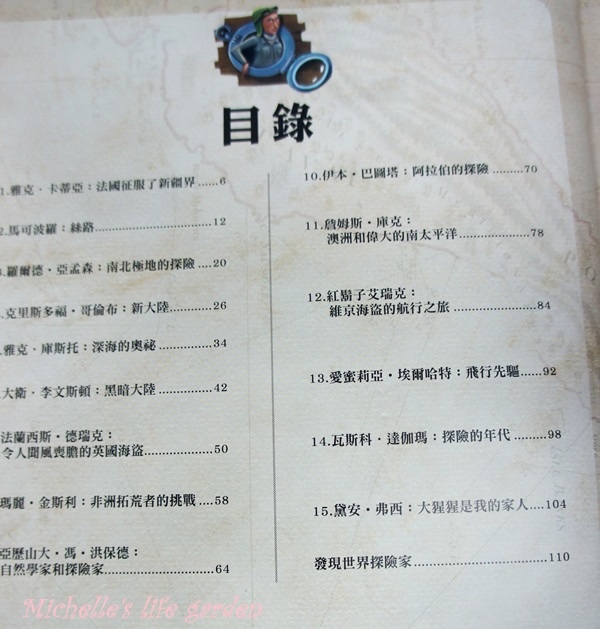 目錄
1.雅克．卡蒂亞：法國征服了新疆界......6
2.馬可波羅：絲路..............................12
羅爾德・亞孟森：南北極地的探險....20
克里斯多福・哥倫布：新大陸...............26
雅克・庫斯托：深海的奧祕..............34
大衛．李文斯頓：黑暗大陸..............42
法蘭西斯・德瑞克：
令人聞風喪膽的英國海盜.................50
瑪麗・金斯利：非洲拓荒者的挑戰....58
亞歷山大・馮・洪保德：
自然學家和探險家...........................64
10.伊本・巴圖塔：阿拉伯的探險.........70
11.詹姆斯・庫克：
澳洲和偉大的南太平洋..................78
12.紅鬍子艾瑞克：
維京海盜的航行之旅.....................84
13.愛蜜莉亞・埃爾哈特：飛行先驅......92
14.瓦斯科．達伽瑪：探險的年代.........98
15.黛安・弗西：大猩猩是我的家人....104
發現世界探險家..................................110
Michelle's life garden